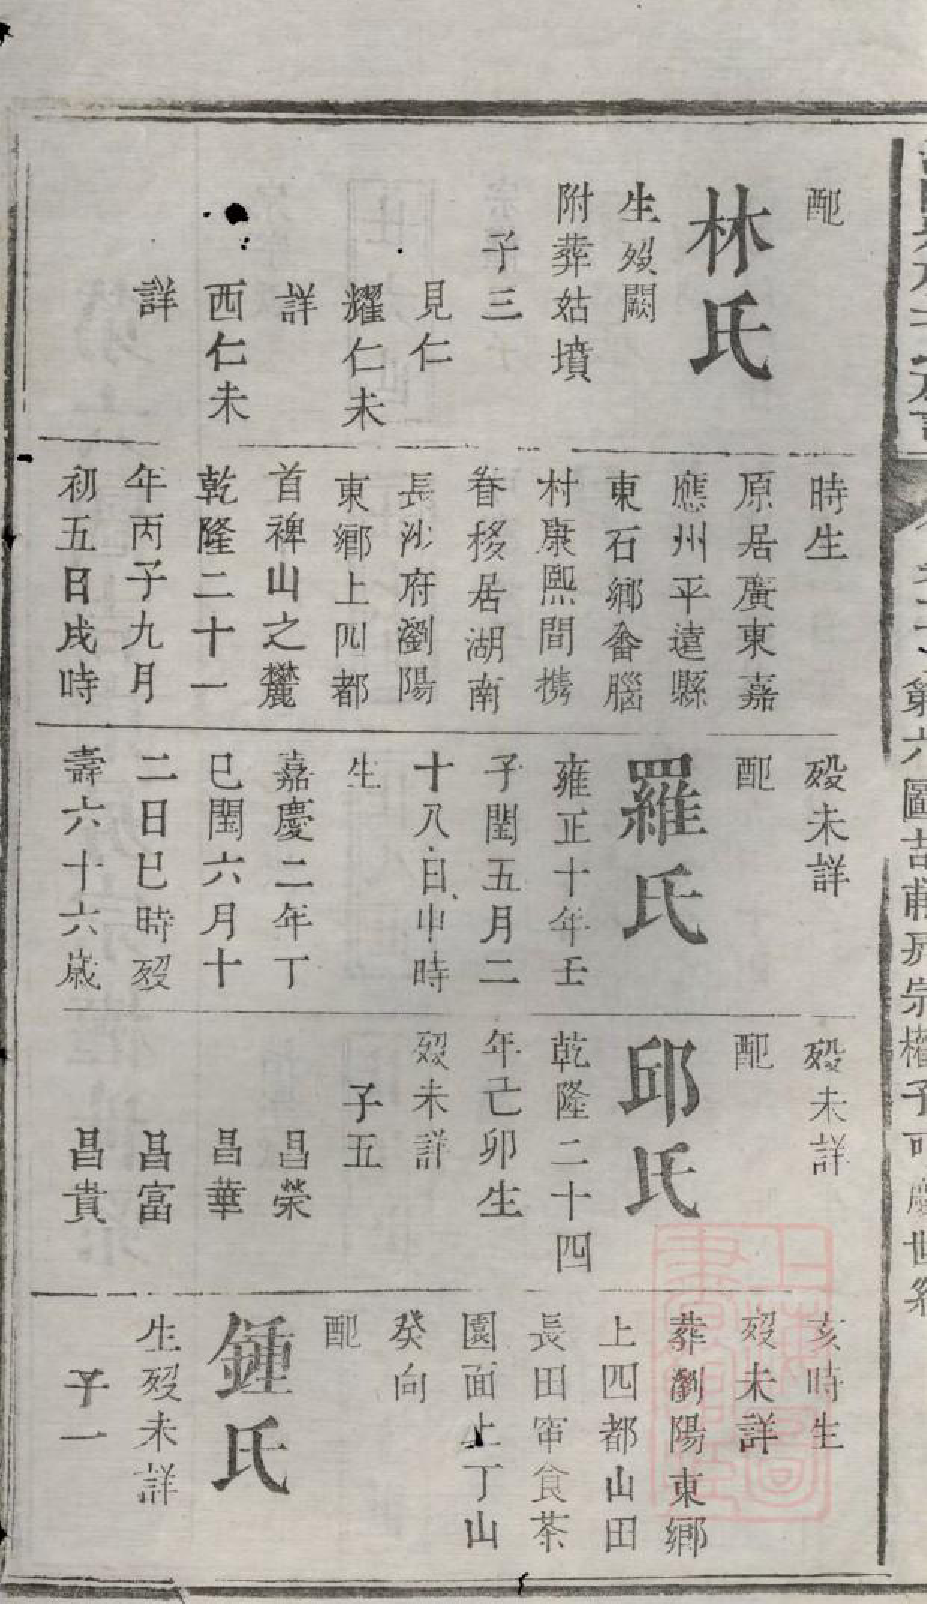 配
林氏
生歿闕
附葬姑墳
子三
見仁
耀仁未
詳
西仁未
詳
時生
原居廣東嘉
應州平遠縣
東石鄉畲腦
村康熙間携
眷移居湖南
長沙府瀏陽
東鄉上四都
首禆山之麓
乾隆二十一
年丙子九月
初五日戌時
歿未詳
配
羅氏
雍正十年壬
子閏五月二
十八日申時
生
嘉慶二年丁
巳閏六月十
二日巳時歿
壽六十六歲
歿未詳
配
邱氏
乾隆二十四
年己卯生
歿未詳
子五
昌榮
昌華
昌富
昌貴
亥時生
歿未詳
葬瀏陽東鄉
上四都山田
長田窜食茶
園面上丁山
癸向
配
鍾氏
生歿未詳
子一